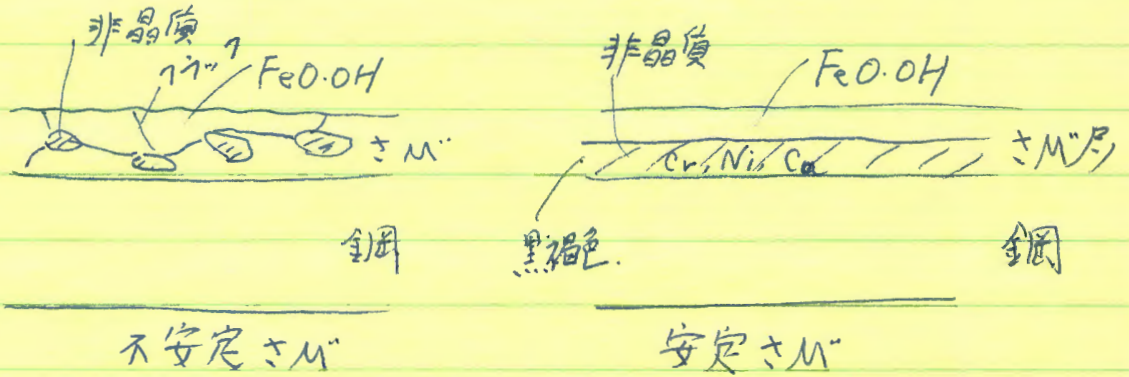 非晶質
クラック
FeO·OH
さび
鋼
不安定さび
非晶質
FeO·OH
Cr, Ni, Cu
さび层
黒褐色.
鋼
安定さび